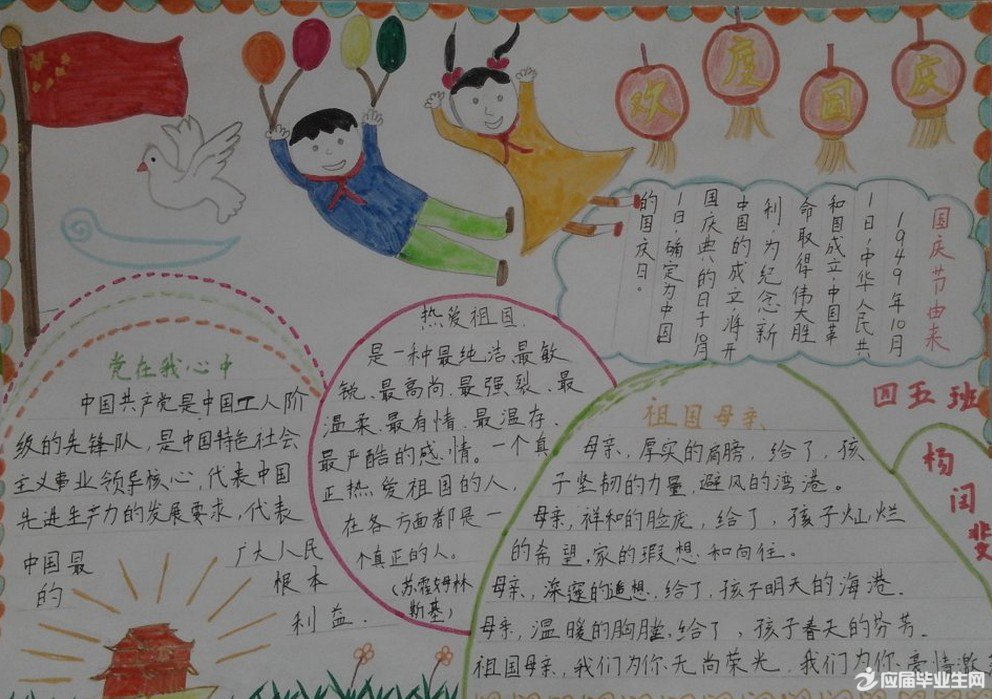 欢度国庆
国庆节由来
1949年10月
1日,中华人民共
和国成立,中国革
命取得伟大胜
利,为纪念新
中国的成立,将开
国庆典的日子10月
1日,确定为中国
的国庆日。
四五班
杨闰斐
党在我心中
中国共产党是中国工人阶
级的先锋队,是中国特色社会
主义事业领导核心,代表中国
先进生产力的发展要求,代表
中国最 广大人民
的 根本
利益.
热爱祖国.
是一种最纯洁、最敏
锐、最高尚、最强裂、最
温柔、最有情、最温存、
最严酷的感情。一个真
正热爱祖国的人,
在各方面都是一
个真正的人。
(苏霍姆林
斯基)
祖国母亲
母亲,厚实的肩膀,给了,孩
子坚韧的力量,避风的湾港。
母亲,祥和的脸庞,给了,孩子灿烂
的希望,家的瑕想,和向往。
母亲,深邃的遐想,给了,孩子明天的海港.
母亲,温暖的胸膛,给了,孩子春天的芬芳.
祖国母亲,我们为你无尚荣光,我们为你豪情激
应届毕业生网